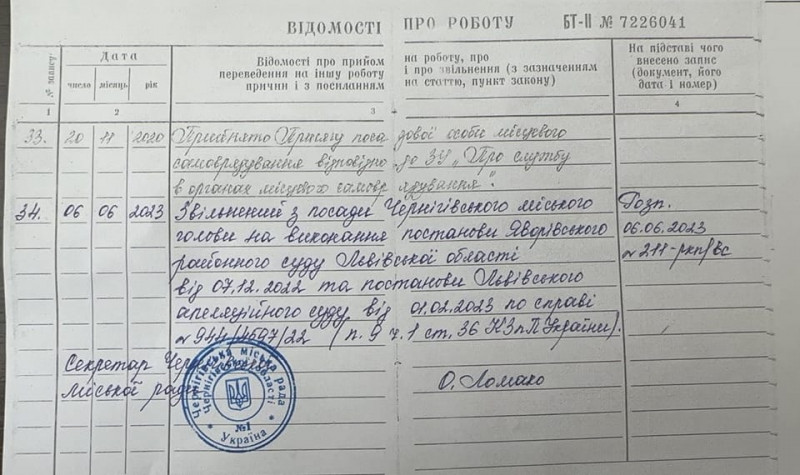 ВІДОМОСТІ ПРО РОБОТУ БТ-ІІ № 7226041
№ запису
Дата
число місяць рік
Відомості про прийом
переведення на іншу роботу
причин і з посиланням
на роботу, про
і про звільнення (з зазначенням
на статтю, пункт закону)
На підставі чого
внесено запис
(документ, його
дата і номер)
1 2 3 4
33. 20 11 2020 Прийнято Присягу поса дової особи місцевого
самоврядування відповідно до ЗУ „Про службу
в органах місцевого самовр ядування".
34. 06 06 2023 Звільнений з посади Чернігівського міського Розп.
голови на виконання постанови Яворівського 06.06.2023
районного суду Львівської області №211-ркп/вс
від 07.12.2022 та постанови Львівського
апеляційного суду від 01.02.2023 по справі
№944/4507/22 (п. 9 ч. 1 ст. 36 КЗпП України).
Секретар Черн
міської ради О. Ломако
Чернігівська міська рада
Чернігівської області
№1
* Україна *